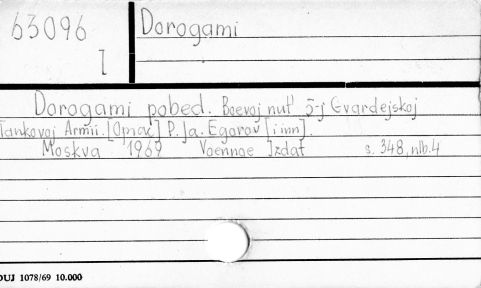 63096
I
Dorogami
Dorogami pobed. Boevoj put' 5-j Gvardejskoj
Tankovoj Armii. [Oprac] P. Ja. Egorov [i inn].
Moskva 1969 Voennoe Izdat s. 348, nlb. 4
OUJ 1078/69 10.000